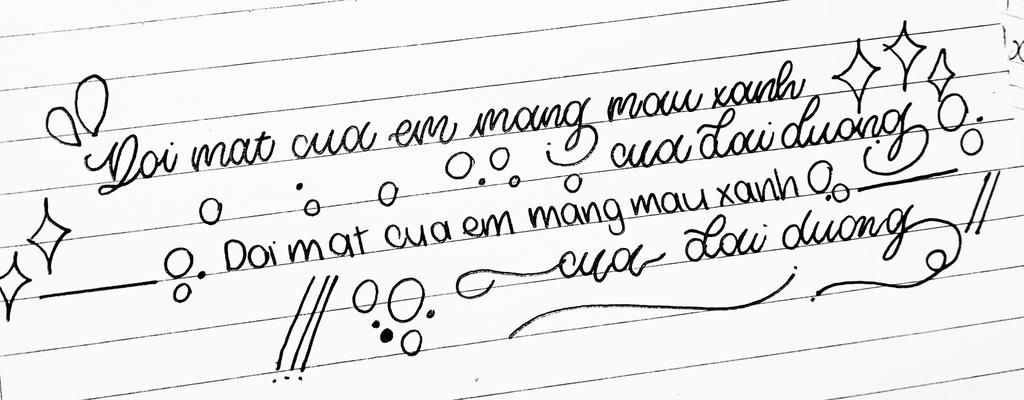 Doi mat cua em mang mau xanh
cua dai duong
Doi mat cua em mang mau xanh
cua dai duong